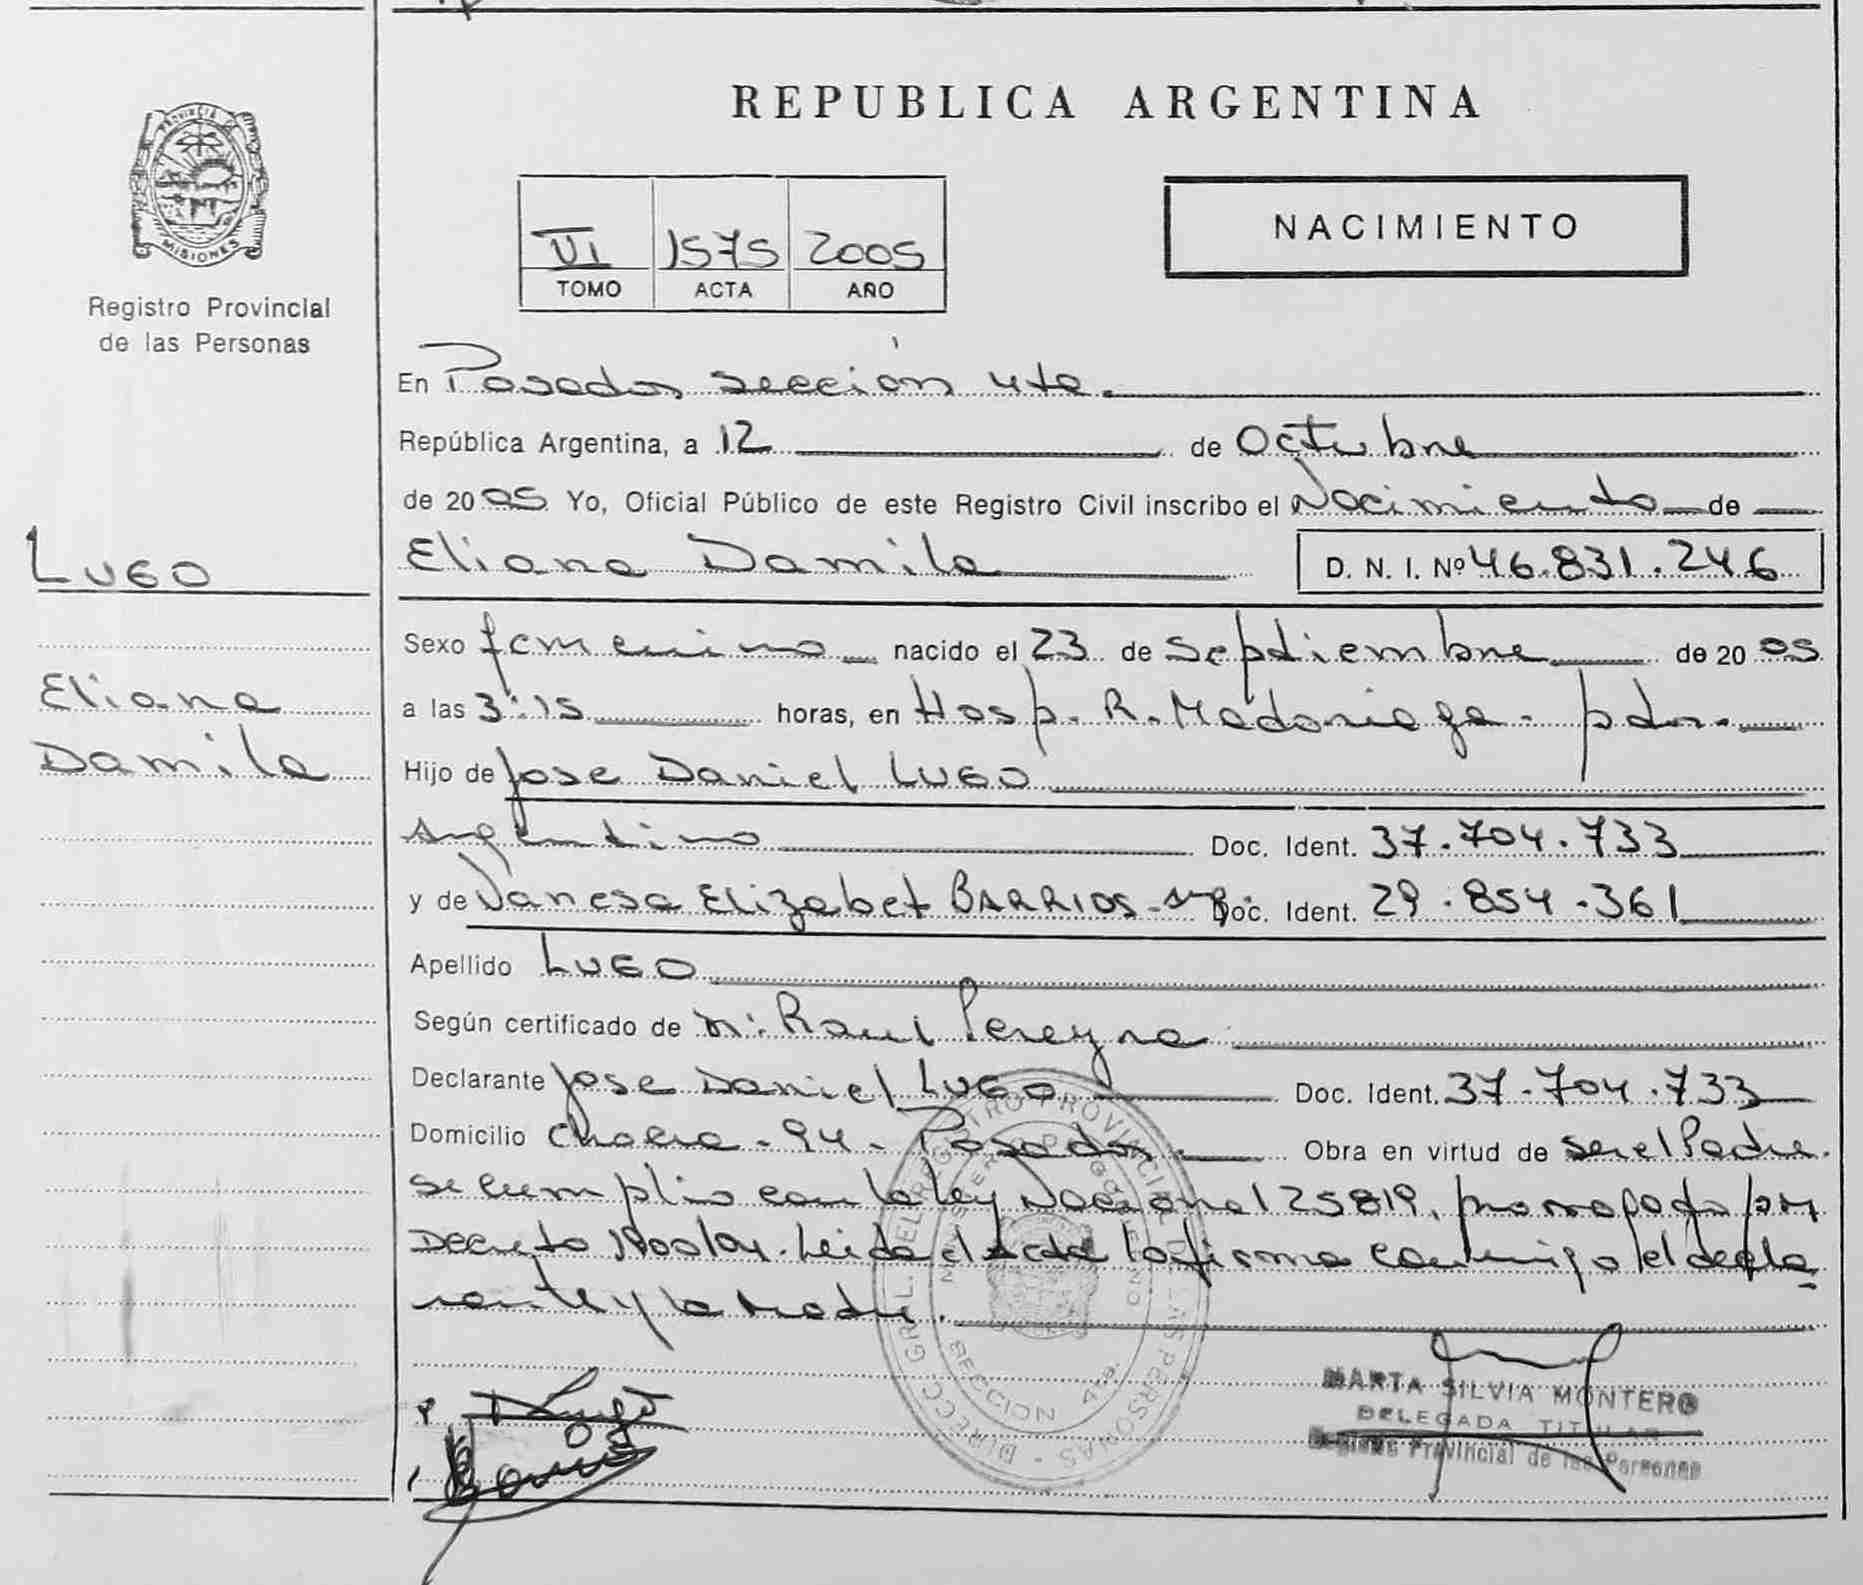 REPUBLICA ARGENTINA
PROVINCIA DE MISIONES
Registro Provincial
de las Personas
VI 1575 2005
TOMO ACTA AÑO
NACIMIENTO
En Posadas sección 4ta.
República Argentina, a 12 de Octubre
de 2005 Yo, Oficial Público de este Registro Civil inscribo el Nacimiento de
LUGO
Eliana Damila D. N. I. Nº 46.831.246
Sexo femenino nacido el 23 de Septiembre de 2005
Eliana
a las 3:15 horas, en Hosp. R. Madariaga - pdas.
Damila
Hijo de Jose Daniel LUGO
Argentino Doc. Ident. 37.704.733
y de Vanesa Elizabet BARRIOS - arg. Doc. Ident. 29.854.361
Apellido LUGO
Según certificado de Raul Pereyra
Declarante Jose Daniel LUGO Doc. Ident. 37.704.733
Domicilio Chacra - 94 - Posadas Obra en virtud de ser el Padre.
se cumplio con la ley Nacional 25819, prorrogado por
Decreto 1900/04. Leida el acta la firma conmigo el decla
rante y la madre.
DIRECC. GRAL. DEL REGISTRO PROVINCIAL DE LAS PERSONAS
MINISTERIO DE GOBIERNO
SECCION 4ta.
MARTA SILVIA MONTERO
DELEGADA TITULAR
Registro Provincial de las Personas
Lugo